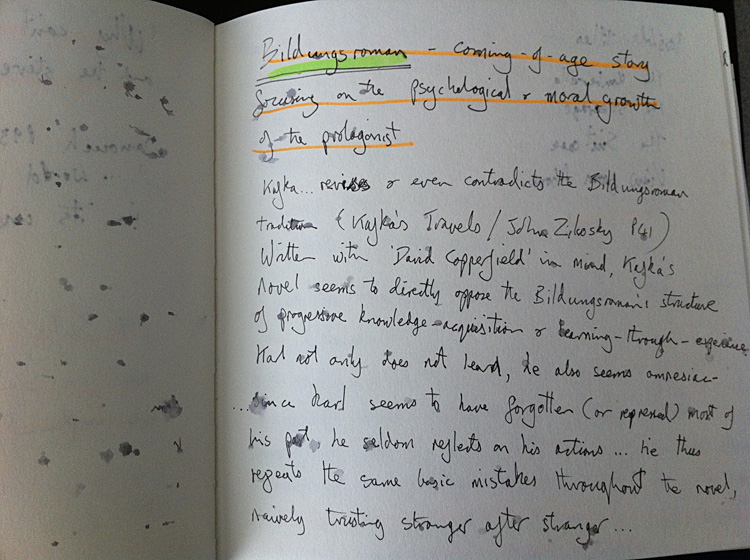 Bildungsroman - coming-of-age story
focusing on the psychological & moral growth
of the protagonist
Kafka... revises or even contradicts the Bildungsroman
tradition (Kafka's Travels / John Zilkosky P41)
Written with 'David Copperfield' in mind, Kafka's
novel seems to directly oppose the Bildungsroman's structure
of progressive knowledge-acquisition & learning-through-experience
Karl not only does not learn, he also seems amnesiac-
...since Karl seems to have forgotten (or repressed) most of
his past, he seldom reflects on his actions... he thus
repeats the same basic mistakes throughout the novel,
naively trusting stranger after stranger...